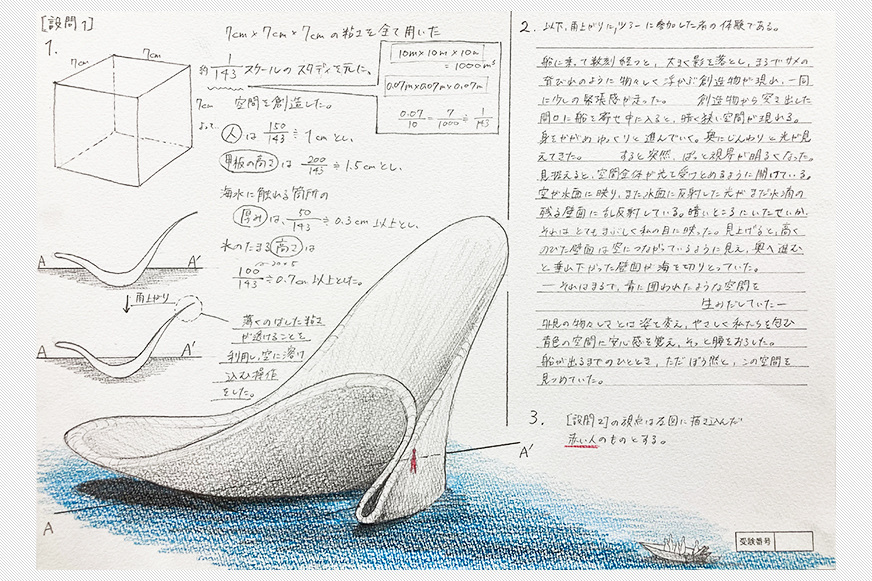 [設問1]
1.
7cm
7cm
7cm
7cm×7cm×7cmの粘土を全て用いた
約1/143スケールのスタディを元に、
空間を創造した。
よって、
10m×10m×10m
=1000m³
0.07m×0.07m×0.07m
0.07/10=7/1000≒1/143
人は150/143≒1cmとし、
甲板の高さは200/143≒1.5cmとし、
海水に触れる箇所の
厚みは、50/143≒0.3cm以上とし、
水のたまる高さは
100/143≒0.7cm以上とした。
A A'
雨上がり
A A'
薄くのばした粘土
が透けることを
利用し、空に溶け
込む操作
をした。
A
A'
2. 以下、雨上がりに、ツアーに参加した者の体験である。
船に乗って数刻経つと、大きく影を落とし、まるでサメの
背びれのように物々しく浮かぶ創造物が現れ、一同
に少しの緊張感が走った。 創造物から突き出した
開口に船を寄せ中に入ると、暗く狭い空間が現れる。
身をかがめゆっくりと進んでいく。奥にじんわりと光が見
えてきた。 すると突然、ぱっと視界が明るくなった。
見渡すと、空間全体が光を受けとめるように開けている。
空が水面に映り、また水面に反射した光がまだ水滴の
残る壁面に乱反射している。暗いところにいたせいか、
それはとてもまぶしく私の目に映った。見上げると、高く
のびた壁面は空につながっているように見え、奥へ進む
と垂れ下がった壁面が海を切りとっていた。
―それはまるで、青に囲われたような空間を
生みだしていた―
外見の物々しさとは姿を変え、やさしく私たちを包む
青色の空間に安心感を覚え、そっと腰をおろした。
船が出るまでのひととき、ただぼう然と、この空間を
見つめていた。
3. [設問2]の視点は左図に描き込んだ
赤い人のものとする。
受験番号